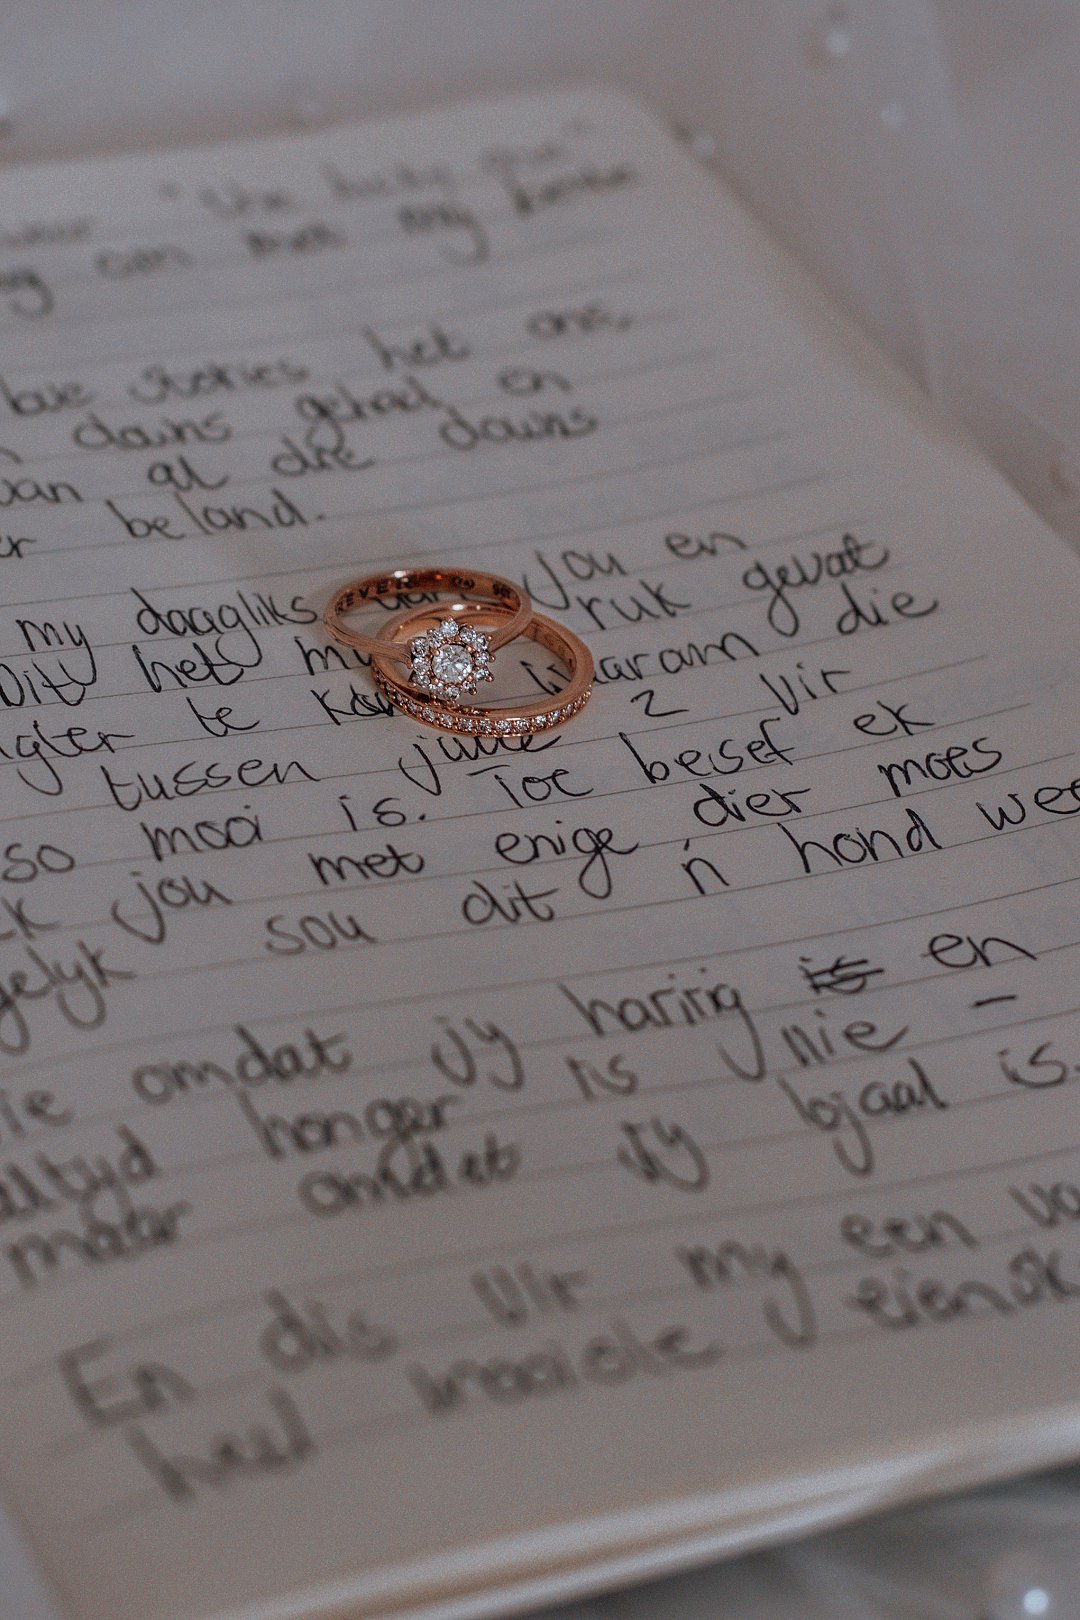 "the lucky one"
om met my
love stories het ons,
downs gehad en
van al die downs
beland.
my daagliks aan jou en
Dit het my ruk gevat
te kom waarom die
tussen julle 2 vir
so mooi is. Toe besef ek
ek jou met enige dier moes
gelyk sou dit 'n hond wees
omdat jy harig is en
altyd honger is nie —
maar omdat jy lojaal is.
En dis vir my een van
heel mooiste eiensk
EVER